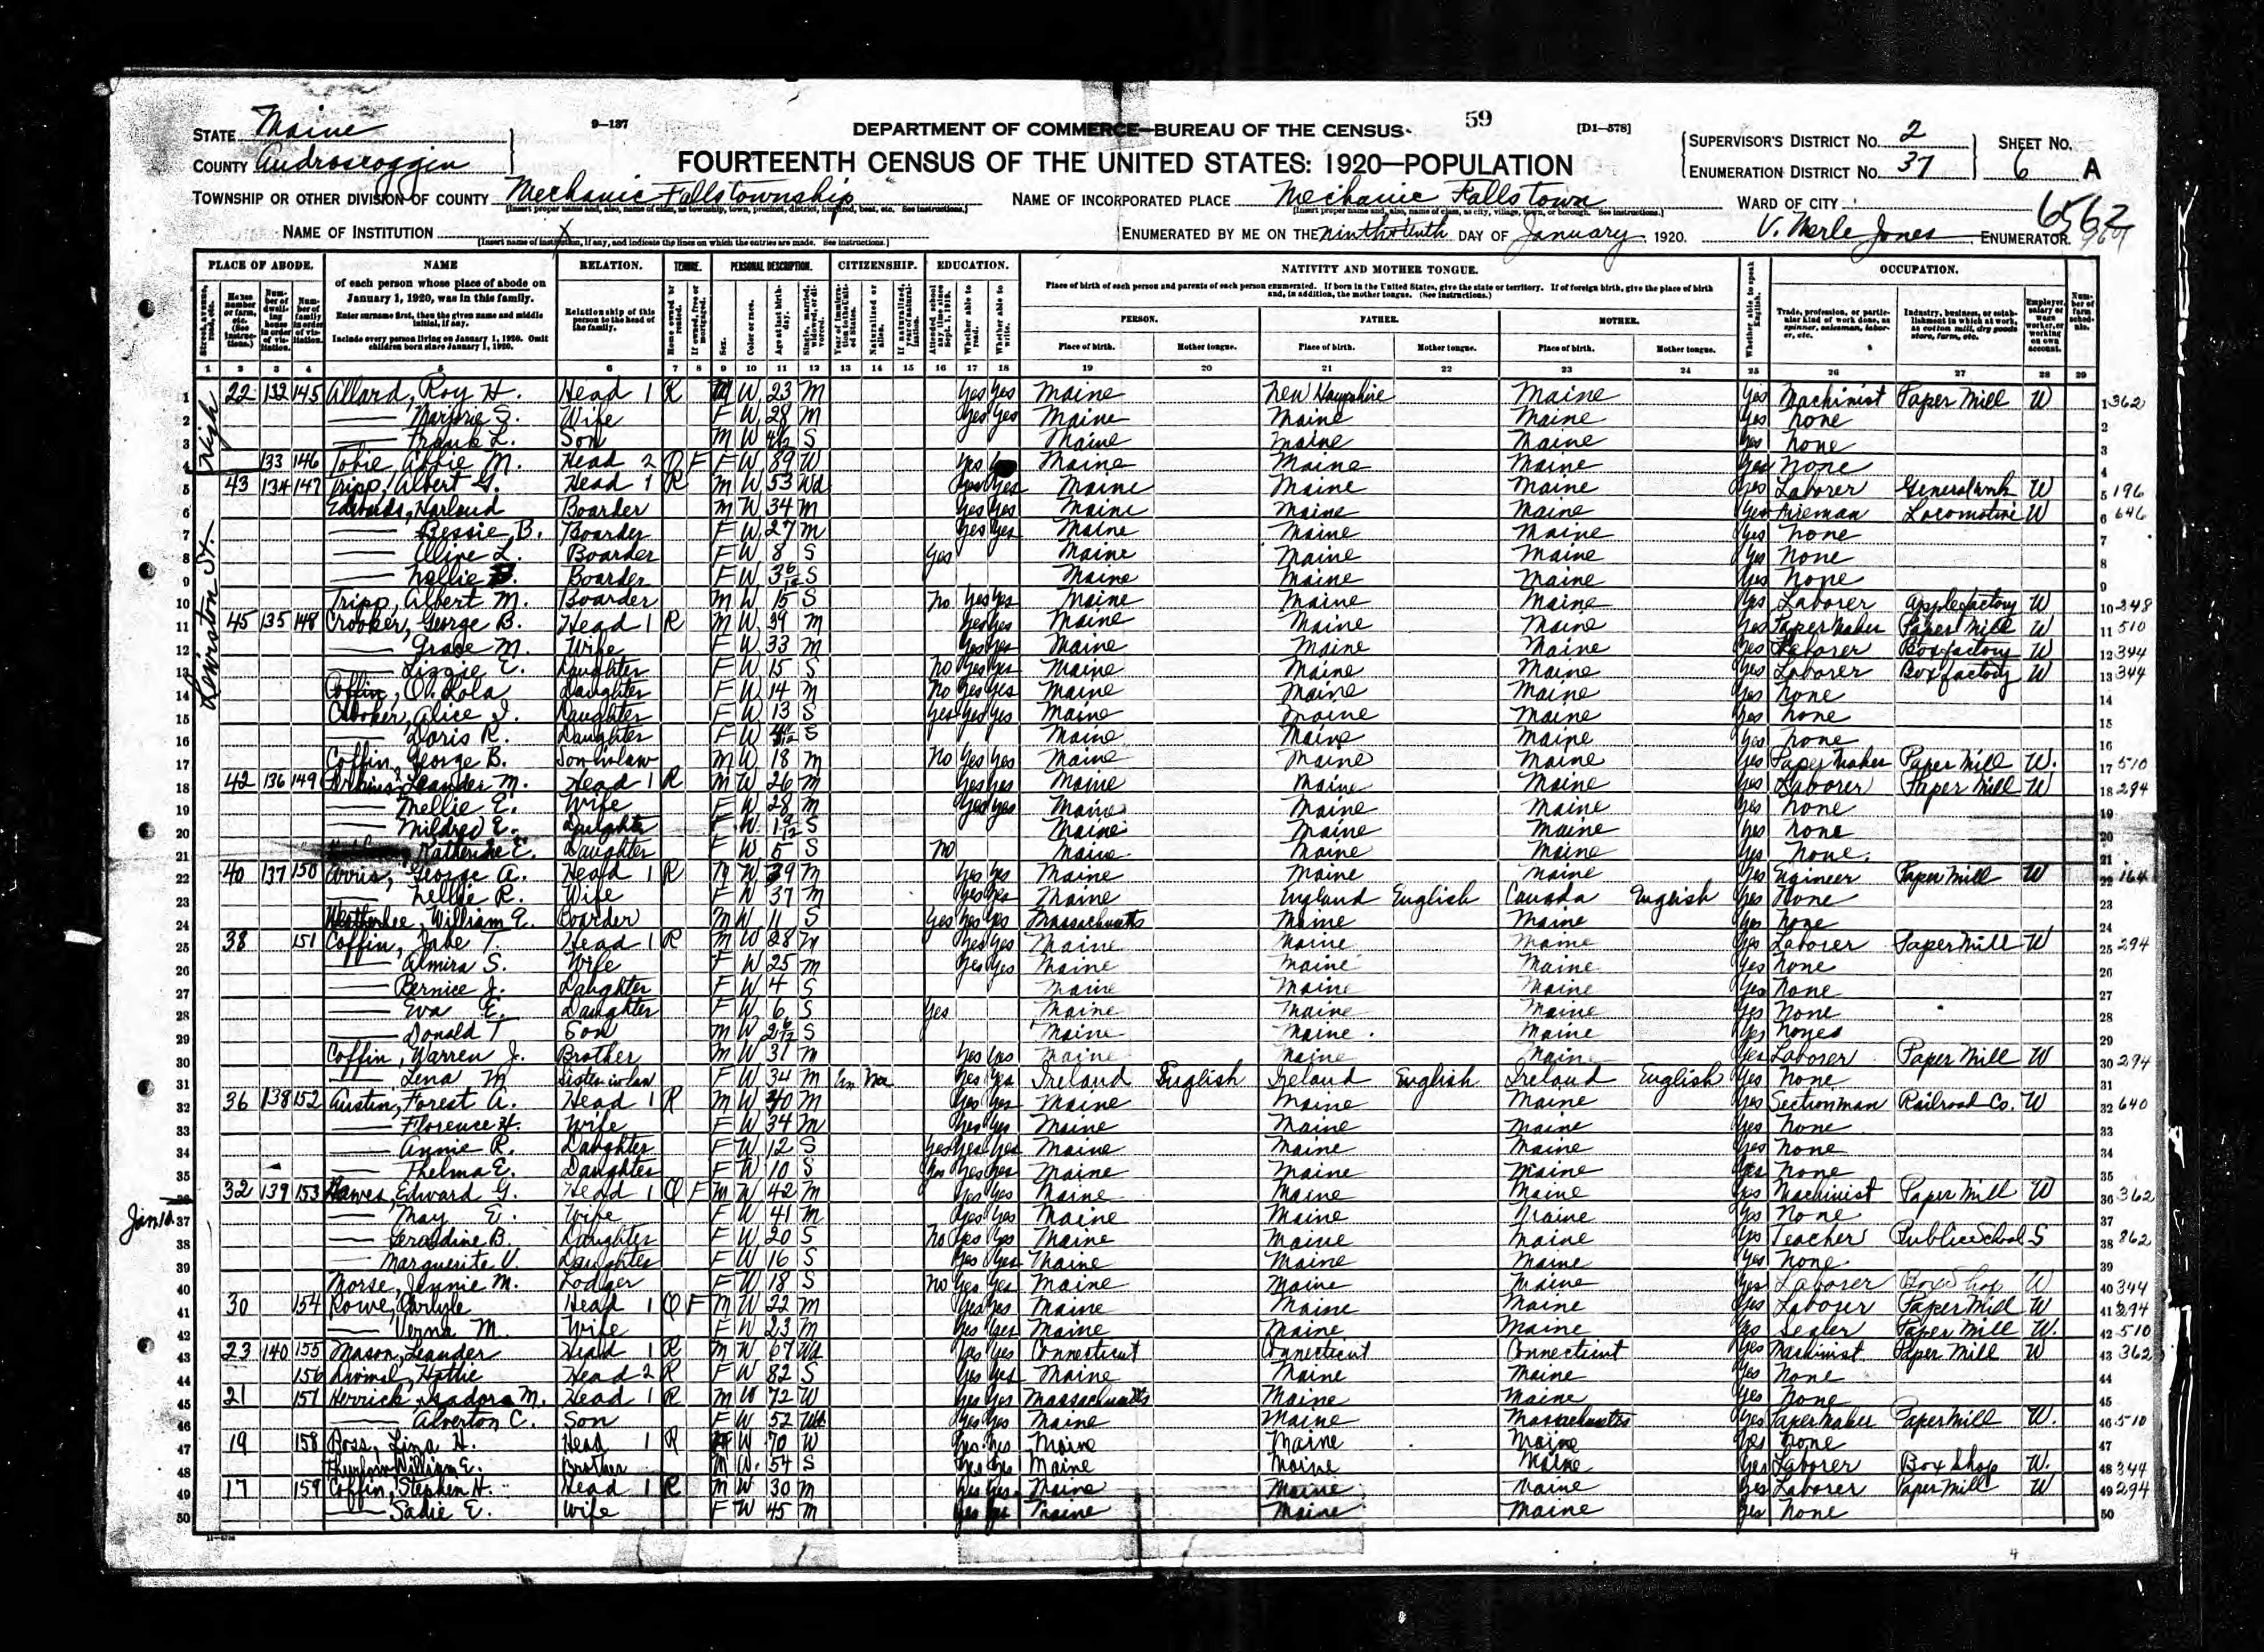 59
9-137
[D1-578]
STATE Maine
DEPARTMENT OF COMMERCE—BUREAU OF THE CENSUS
COUNTY Androscoggin
FOURTEENTH CENSUS OF THE UNITED STATES: 1920—POPULATION
SUPERVISOR'S DISTRICT No. 2
ENUMERATION DISTRICT No. 37
SHEET No. 6 A
TOWNSHIP OR OTHER DIVISION OF COUNTY Mechanic Falls township
NAME OF INCORPORATED PLACE Mechanic Falls town
WARD OF CITY
6562
NAME OF INSTITUTION X
ENUMERATED BY ME ON THE DAY OF January, 1920. V. Merle Jones ENUMERATOR.
PLACE OF ABODE. NAME RELATION. TENURE. PERSONAL DESCRIPTION. CITIZENSHIP. EDUCATION. NATIVITY AND MOTHER TONGUE. OCCUPATION.
of each person whose place of abode on January 1, 1920, was in this family.
Enter surname first, then the given name and middle initial, if any.
Include every person living on January 1, 1920. Omit children born since January 1, 1920.
Relationship of this person to the head of the family.
Place of birth of each person and parents of each person enumerated. If born in the United States, give the state or territory. If of foreign birth, give the place of birth and, in addition, the mother tongue. (See instructions.)
PERSON. FATHER. MOTHER.
Place of birth. Mother tongue. Place of birth. Mother tongue. Place of birth. Mother tongue.
1 2 3 4 5 6 7 8 9 10 11 12 13 14 15 16 17 18 19 20 21 22 23 24 25 26 27 28 29
High
Lewiston St.
1 22 132 145 Allard, Roy H. Head 1 R M W 23 M Yes Yes Maine New Hampshire Maine Yes Machinist Paper Mill W 1 362
2 Marjorie S. Wife F W 28 M Yes Yes Maine Maine Maine Yes None 2
3 Frank L. Son M W S Maine Maine Maine Yes None 3
4 133 146 Tobie, Abbie M. Head 2 O F F W 89 W Yes Maine Maine Maine Yes None 4
5 43 134 147 Tripp, Albert G. Head 1 R M W 53 Wd Yes Yes Maine Maine Maine Yes Laborer General work W 5 196
6 Edwards, Harland Boarder M W 34 M Yes Yes Maine Maine Maine Yes Fireman Locomotive W 6 646
7 Bessie B. Boarder F W 27 M Yes Yes Maine Maine Maine Yes None 7
8 Olive L. Boarder F W 8 S Yes Maine Maine Maine Yes None 8
9 Nellie Boarder F W 3 6/12 S Maine Maine Maine Yes None 9
10 Tripp, Albert M. Boarder M W 15 S No Yes Yes Maine Maine Maine Yes Laborer Apple factory W 10 248
11 45 135 148 Crooker, George B. Head 1 R M W 39 M Yes Yes Maine Maine Maine Yes Paper Maker Paper Mill W 11 510
12 Grace M. Wife F W 33 M Yes Yes Maine Maine Maine Yes Laborer Box factory W 12 344
13 Lizzie E. Daughter F W 15 S No Yes Yes Maine Maine Maine Yes Laborer Box factory W 13 344
14 Coffin, O. Lola Daughter F W 14 M No Yes Yes Maine Maine Maine Yes None 14
15 Crooker, Alice I. Daughter F W 13 S Yes Yes Yes Maine Maine Maine Yes None 15
16 Doris R. Daughter F W S Maine Maine Maine Yes None 16
17 Coffin, George B. Son in law M W 18 M No Yes Yes Maine Maine Maine Yes Paper Maker Paper Mill W. 17 510
18 42 136 149 Leander M. Head 1 R M W 26 M Yes Yes Maine Maine Maine Yes Laborer Paper Mill W 18 294
19 Mellie E. Wife F W 28 M Yes Yes Maine Maine Maine Yes None 19
20 Mildred E. Daughter F W S Maine Maine Maine Yes None 20
21 Katherine E. Daughter F W 5 S No Maine Maine Maine Yes None 21
22 40 137 150 George A. Head 1 R M W 39 M Yes Yes Maine Maine Maine Yes Engineer Paper Mill W 22 164
23 Nellie R. Wife F W 37 M Yes Yes Maine England English Canada English Yes None 23
24 Weatherbee, William E. Boarder M W 11 S Yes Yes Yes Massachusetts Maine Maine Yes None 24
25 38 151 Coffin, Jabe T. Head 1 R M W 28 M Yes Yes Maine Maine Maine Yes Laborer Paper Mill W 25 294
26 Almira S. Wife F W 25 M Yes Yes Maine Maine Maine Yes None 26
27 Bernice J. Daughter F W 4 S Maine Maine Maine Yes None 27
28 Eva E. Daughter F W 6 S Yes Maine Maine Maine Yes None 28
29 Donald T Son M W 2 6/12 S Maine Maine Maine Yes None 29
30 Coffin, Warren J. Brother M W 31 M Yes Yes Maine Maine Maine Yes Laborer Paper Mill W 30 294
31 Lena M Sister in law F W 34 M Un Yes Yes Ireland English Ireland English Ireland English Yes None 31
32 36 138 152 Austin, Forest A. Head 1 R M W 40 M Yes Yes Maine Maine Maine Yes Section man Railroad Co. W 32 640
33 Florence H. Wife F W 34 M Yes Yes Maine Maine Maine Yes None 33
34 Annie R. Daughter F W 12 S Yes Yes Yes Maine Maine Maine Yes None 34
35 Thelma E. Daughter F W 10 S Yes Yes Yes Maine Maine Maine Yes None 35
36 32 139 153 Hawes, Edward G. Head 1 O F M W 42 M Yes Yes Maine Maine Maine Yes Machinist Paper Mill W 36 362
37 May E. Wife F W 41 M Yes Yes Maine Maine Maine Yes None 37
38 Geraldine B. Daughter F W 20 S No Yes Yes Maine Maine Maine Yes Teacher Public School S 38 862
39 Marguerite V. Daughter F W 16 S Yes Yes Maine Maine Maine Yes None 39
40 Morse, Jennie M. Lodger F W 18 S No Yes Yes Maine Maine Maine Yes Laborer Box Shop W 40 344
41 30 154 Rowe, Carlyle Head 1 O F M W 22 M Yes Yes Maine Maine Maine Yes Laborer Paper Mill W 41 294
42 Verna M. Wife F W 23 M Yes Yes Maine Maine Maine Yes Sealer Paper Mill W. 42 510
43 23 140 155 Mason, Leander Head 1 R M W 67 Wd Yes Yes Connecticut Connecticut Connecticut Yes Machinist Paper Mill W 43 362
44 156 Hattie Head 2 R F W 82 S Yes Yes Maine Maine Maine Yes None 44
45 21 157 Herrick, Isadora M. Head 1 R M W 72 W Yes Yes Massachusetts Maine Maine Yes None 45
46 Alverton C. Son F W 52 Yes Yes Maine Maine Massachusetts Yes Paper Maker Paper Mill W. 46 510
47 19 158 Ross, Lina H. Head 1 R F W 70 W Yes Yes Maine Maine Maine Yes None 47
48 William E. Brother M W 54 S Yes Yes Maine Maine Maine Yes Laborer Box Shop W. 48 344
49 17 159 Coffin, Stephen H. Head 1 R M W 30 M Yes Yes Maine Maine Maine Yes Laborer Paper Mill W 49 294
50 Sadie E. Wife F W 45 M Yes Yes Maine Maine Maine Yes None 50
4